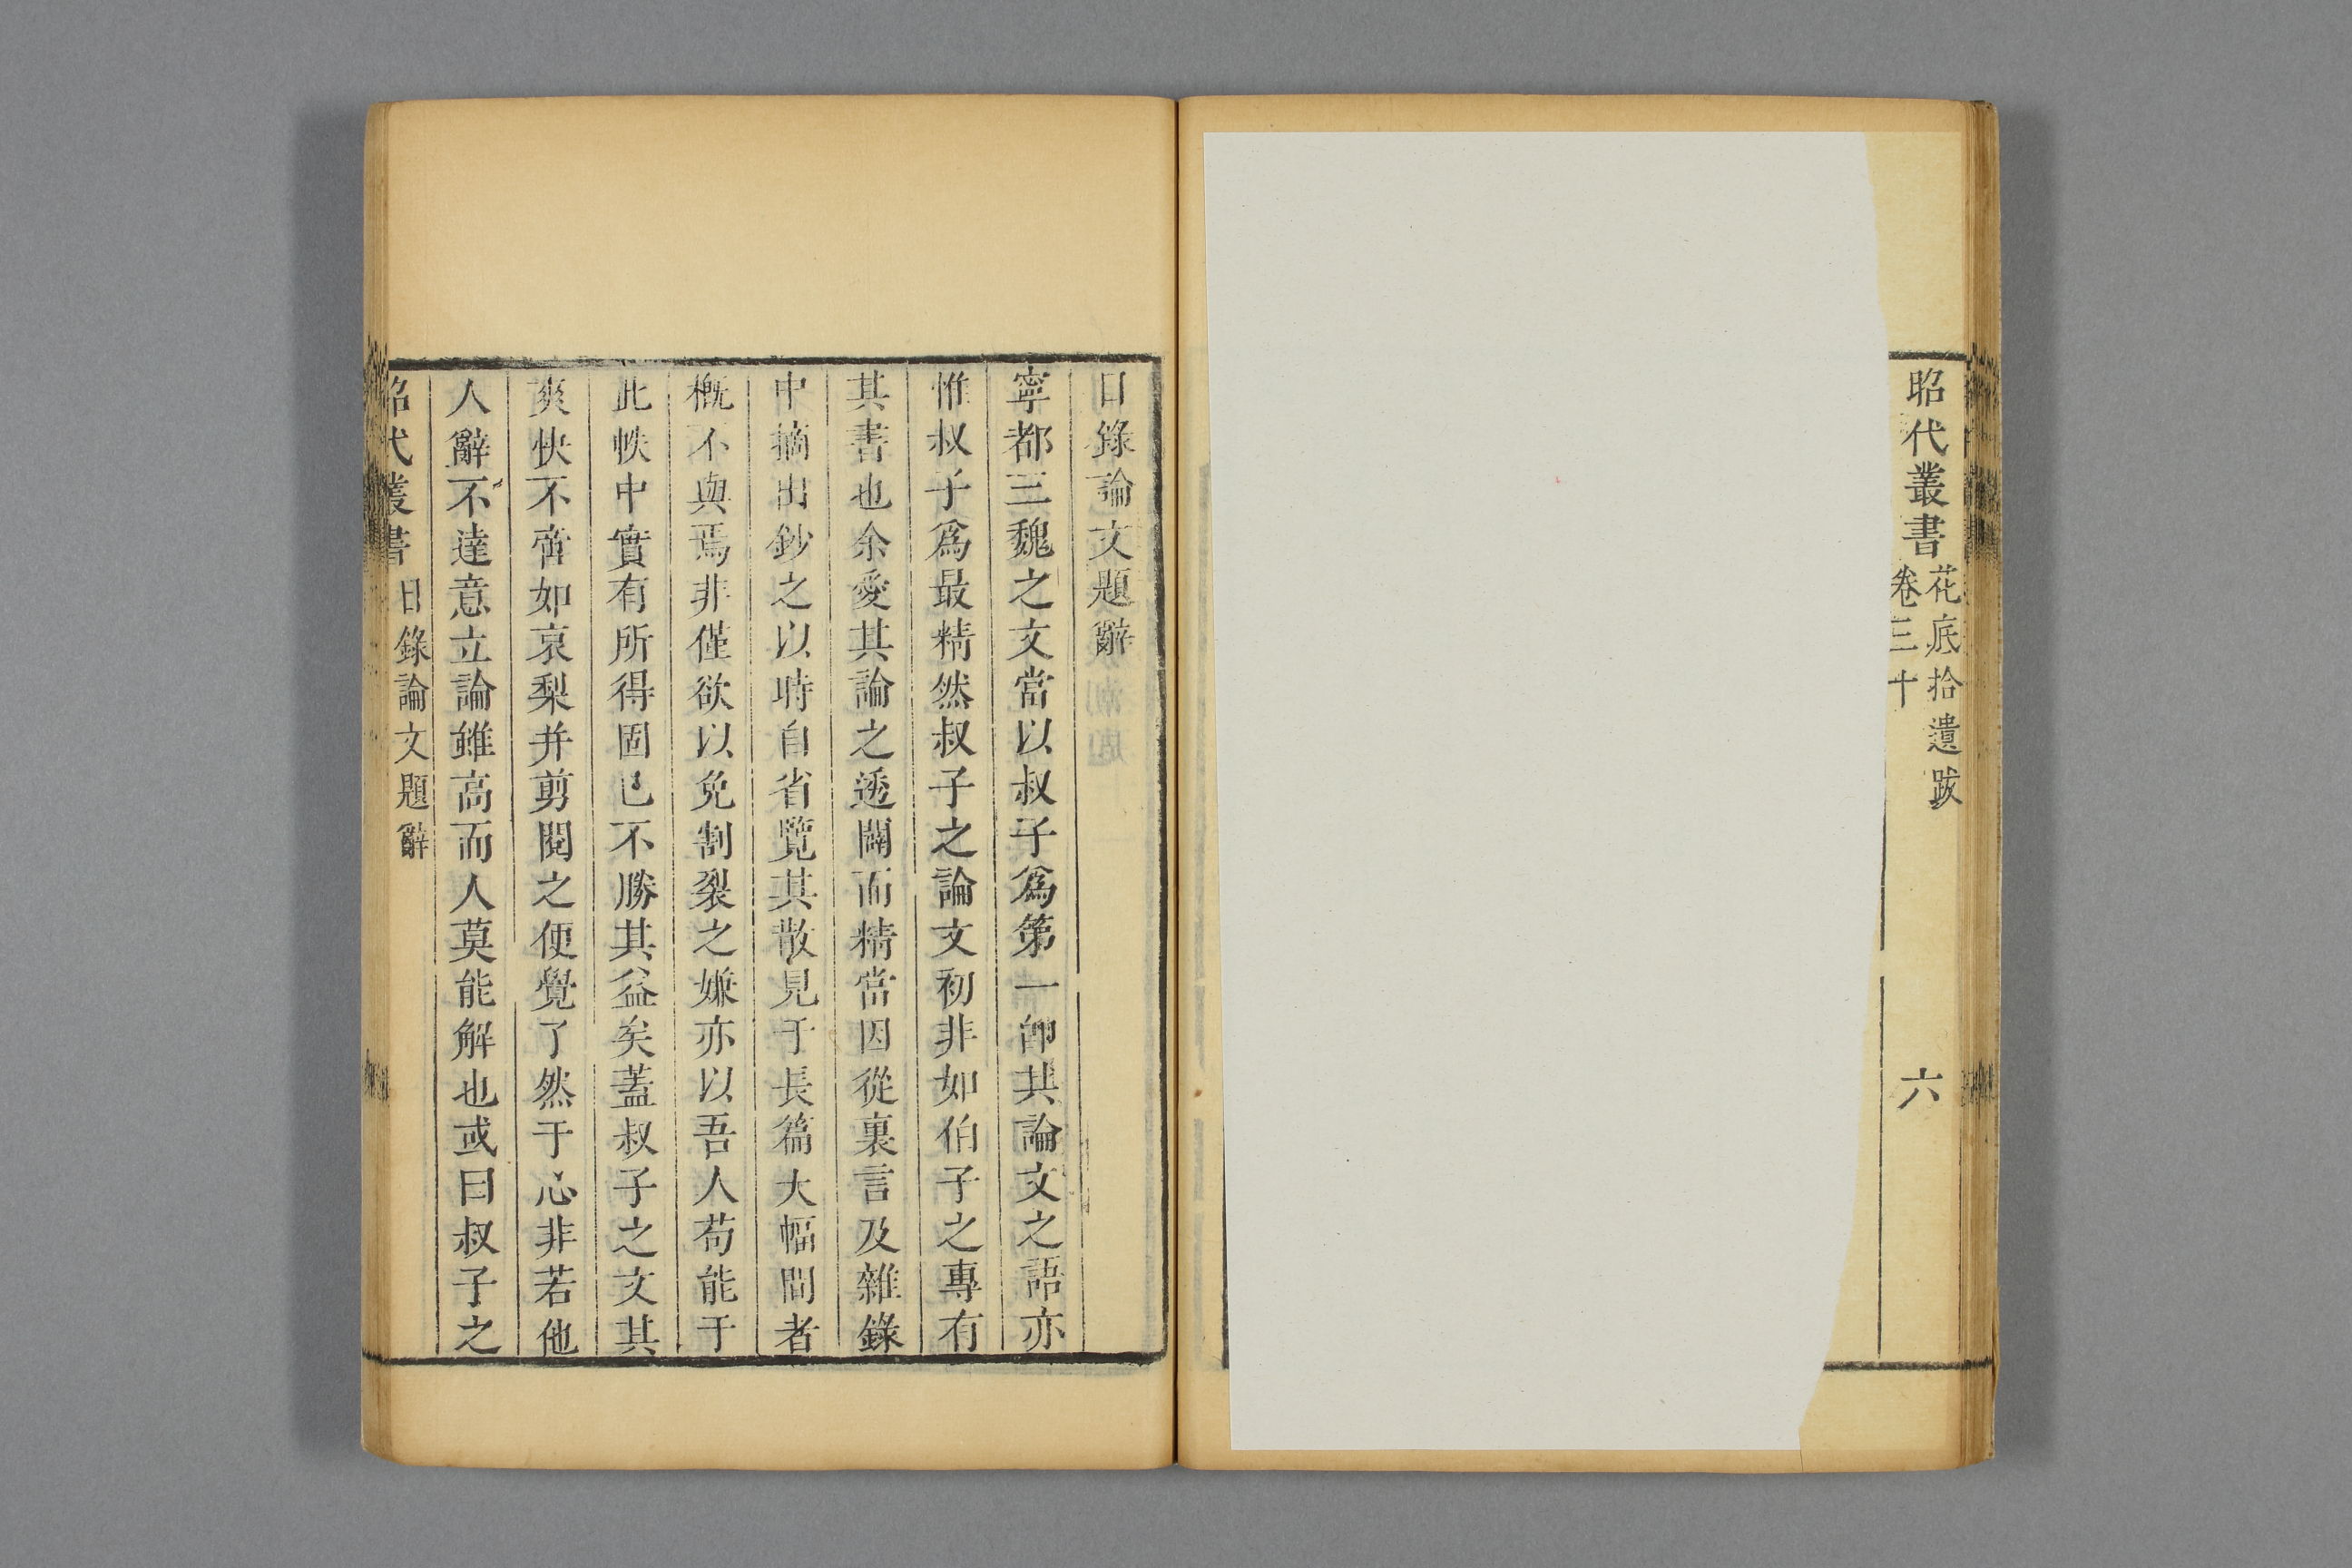 昭代叢書
花底拾遺跋
卷三十
六
日錄論文題辭
寧都三魏之文當以叔子爲第一卽其論文之語亦
惟叔子爲最精然叔子之論文初非如伯子之專有
其書也余愛其論之透闢而精當因從裏言及雜錄
中摘出鈔之以時自省覽其散見于長篇大幅間者
槪不與焉非僅欲以免割裂之嫌亦以吾人苟能于
此帙中實有所得固已不勝其益矣蓋叔子之文其
爽快不啻如哀梨并剪閱之便覺了然于心非若他
人辭不達意立論雖高而人莫能解也或曰叔子之
昭代叢書
日錄論文題辭